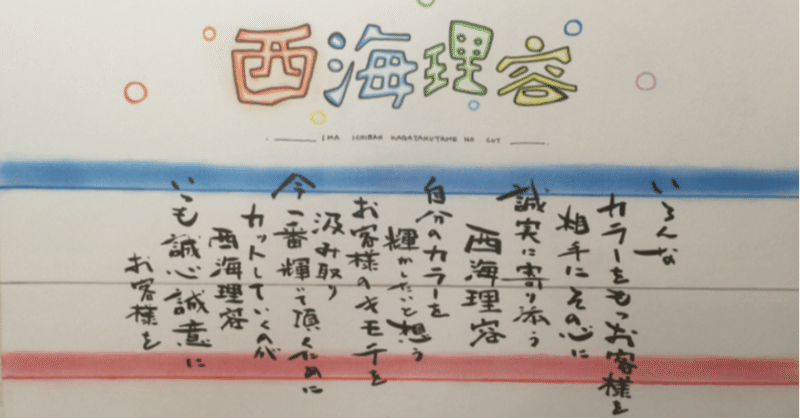 西海理容
IMA ICHIBAN KAGAYAKUTAME NO CUT
いろんな
カラーをもつお客様を
相手にその心に
誠実に寄り添う
西海理容
自分のカラーを
輝かしたいと想う
お客様のキモチを
汲み取り
今一番輝いて頂くために
カットしていくのが
西海理容
いつも誠心誠意に
お客様を